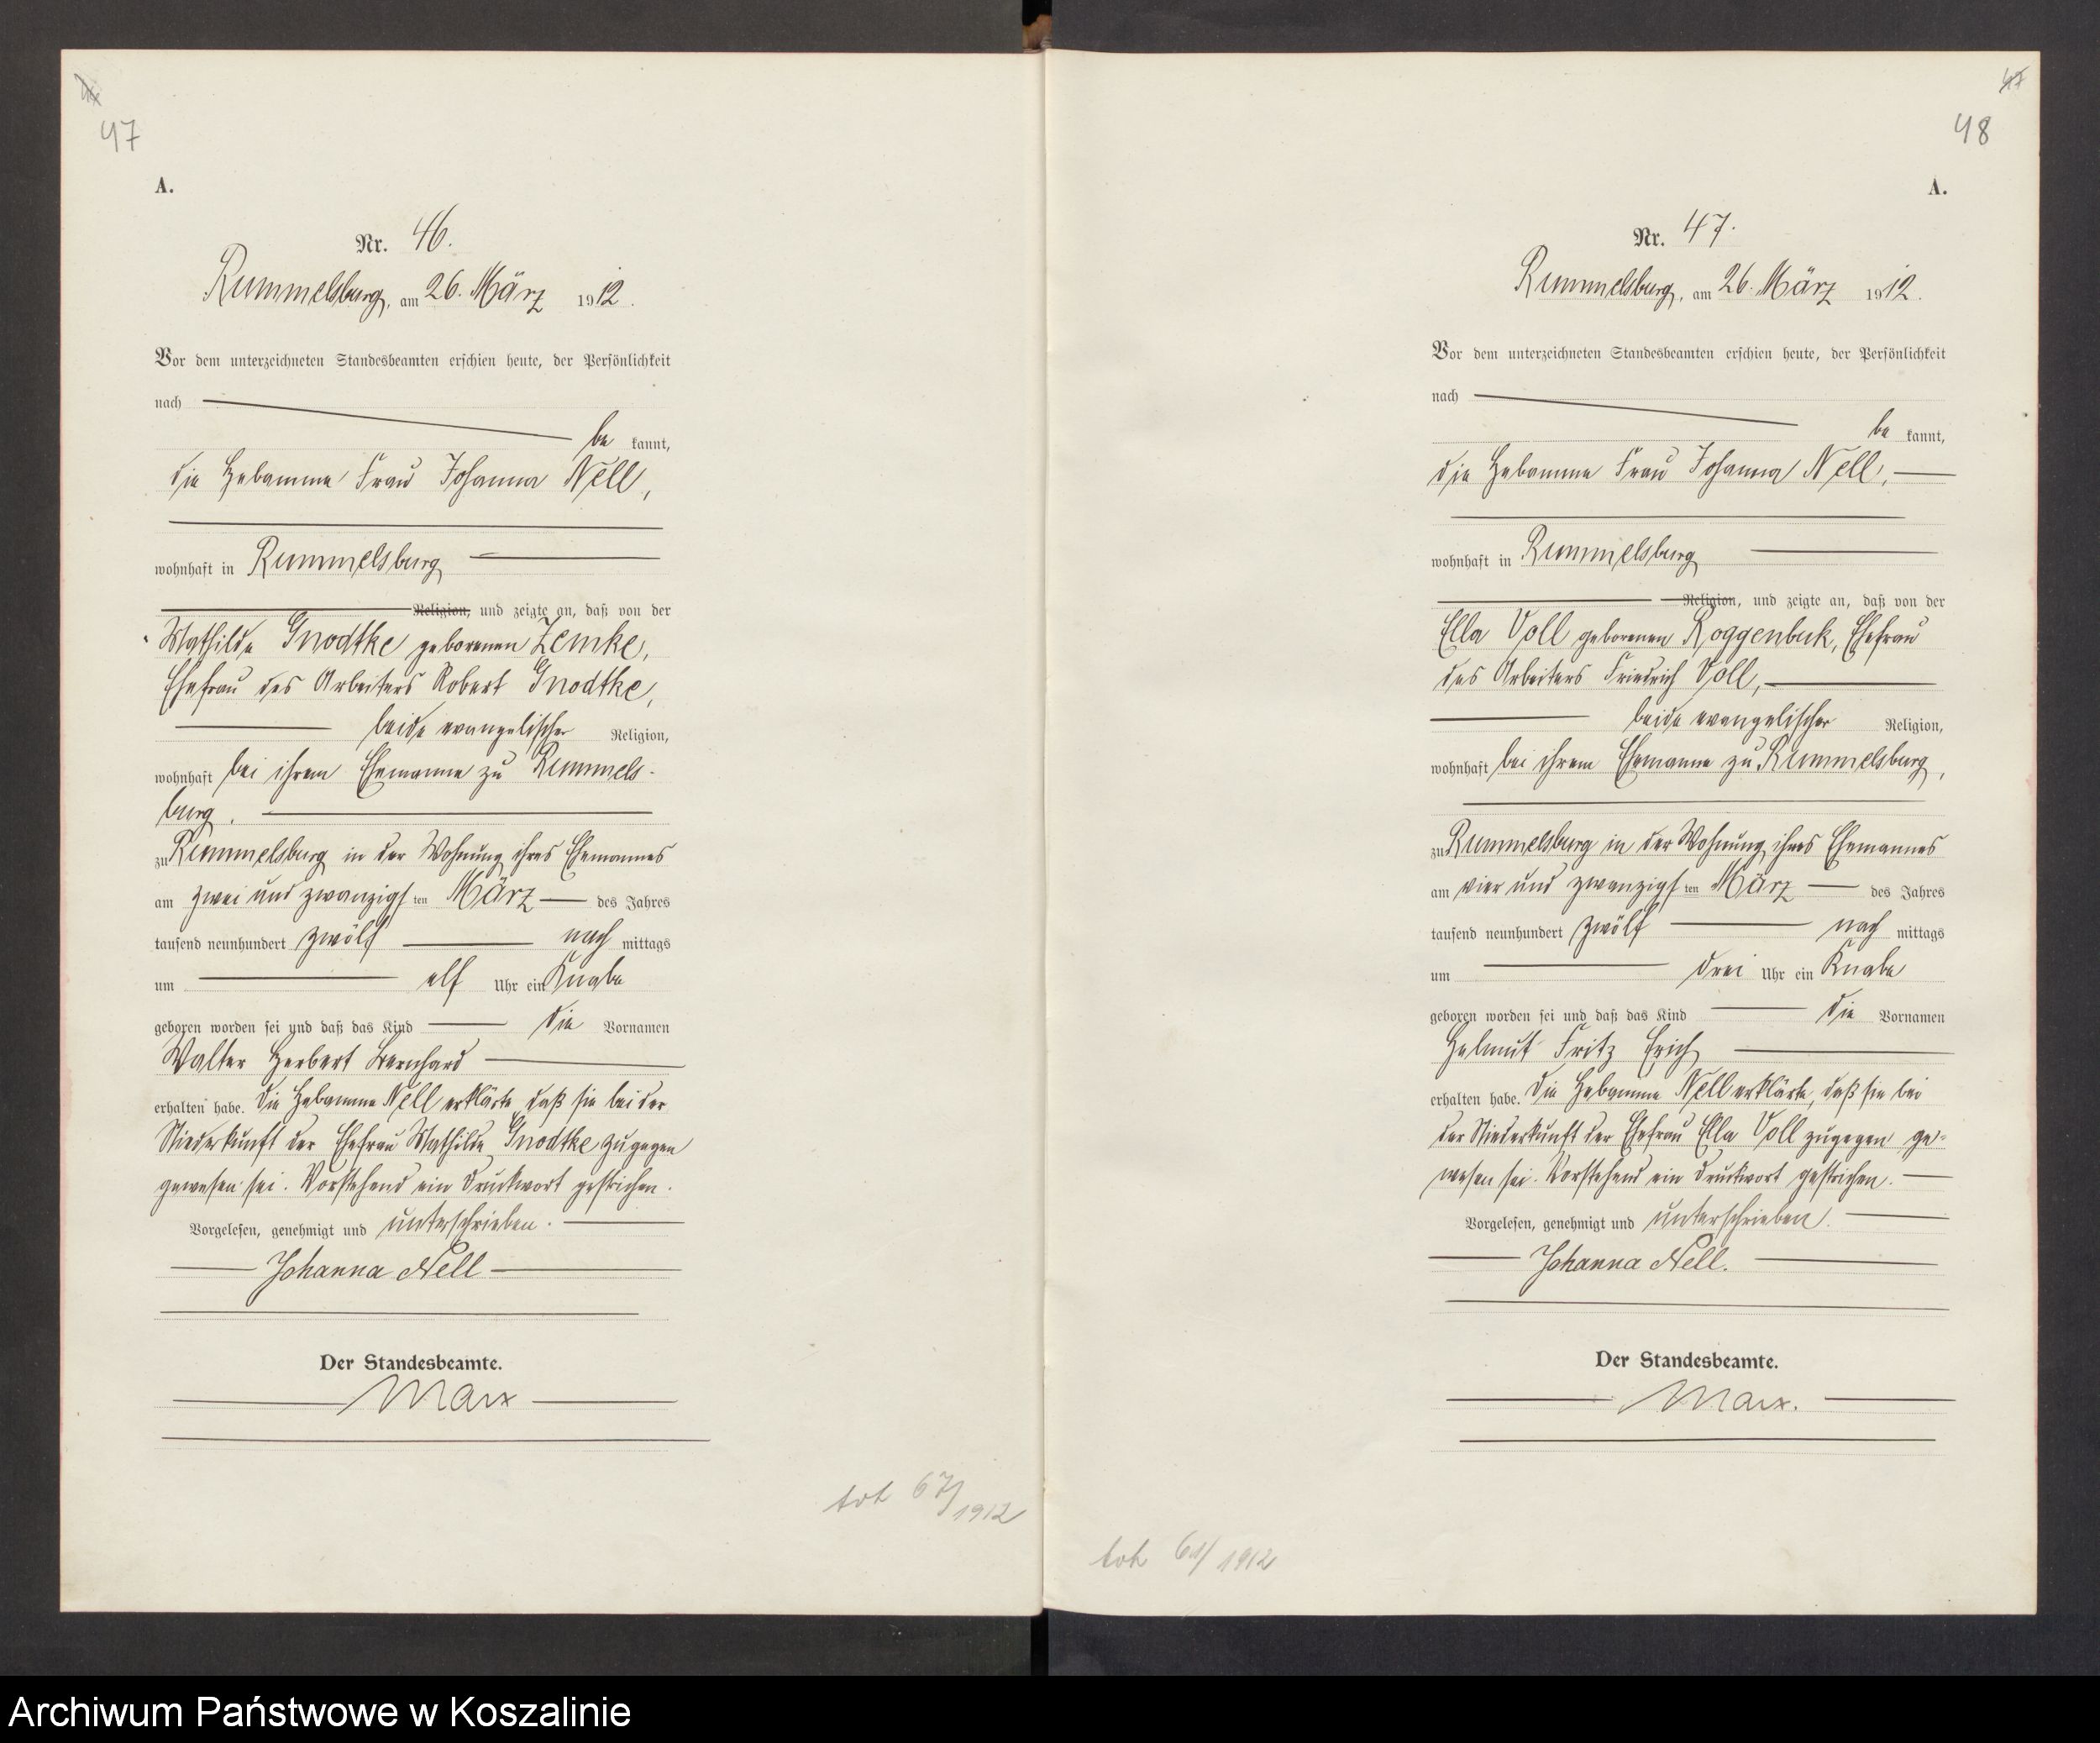 47
A.
Nr. 46.
Rummelsburg, am 26. März 1912.
Vor dem unterzeichneten Standesbeamten erschien heute, der Persönlichkeit
nach
be kannt,
die Hebamme Frau Johanna Nell,
wohnhaft in Rummelsburg
Religion, und zeigte an, daß von der
Mathilde Gnodtke geborenen Zemke,
Ehefrau des Arbeiters Robert Gnodtke,
beide evangelischer Religion,
wohnhaft bei ihrem Ehemanne zu Rummels-
burg.
zu Rummelsburg in der Wohnung ihres Ehemannes
am zwei und zwanzigsten März des Jahres
tausend neunhundert zwölf nach mittags
um elf Uhr ein Knabe
geboren worden sei und daß das Kind die Vornamen
Walter Herbert Bernhard
erhalten habe. Die Hebamme Nell erklärte daß sie bei der
Niederkunft der Ehefrau Mathilde Gnodtke zugegen
gewesen sei. Vorstehend ein Druckwort gestrichen.
Vorgelesen, genehmigt und unterschrieben.
Johanna Nell
Der Standesbeamte.
Marx
tot 67/1912
47
48
A.
Nr. 47.
Rummelsburg, am 26. März 1912.
Vor dem unterzeichneten Standesbeamten erschien heute, der Persönlichkeit
nach
be kannt,
die Hebamme Frau Johanna Nell,
wohnhaft in Rummelsburg
Religion, und zeigte an, daß von der
Ella Voll geborenen Roggenbuk, Ehefrau
des Arbeiters Friedrich Voll,
beide evangelischer Religion,
wohnhaft bei ihrem Ehemanne zu Rummelsburg,
zu Rummelsburg in der Wohnung ihres Ehemannes
am vier und zwanzigsten März des Jahres
tausend neunhundert zwölf nach mittags
um drei Uhr ein Knabe
geboren worden sei und daß das Kind die Vornamen
Helmut Fritz Erich
erhalten habe. Die Hebamme Nell erklärte, daß sie bei
der Niederkunft der Ehefrau Ella Voll zugegen ge-
wesen sei. Vorstehend ein Druckwort gestrichen.
Vorgelesen, genehmigt und unterschrieben.
Johanna Nell.
Der Standesbeamte.
Marx.
tot 61/1912
Archiwum Państwowe w Koszalinie